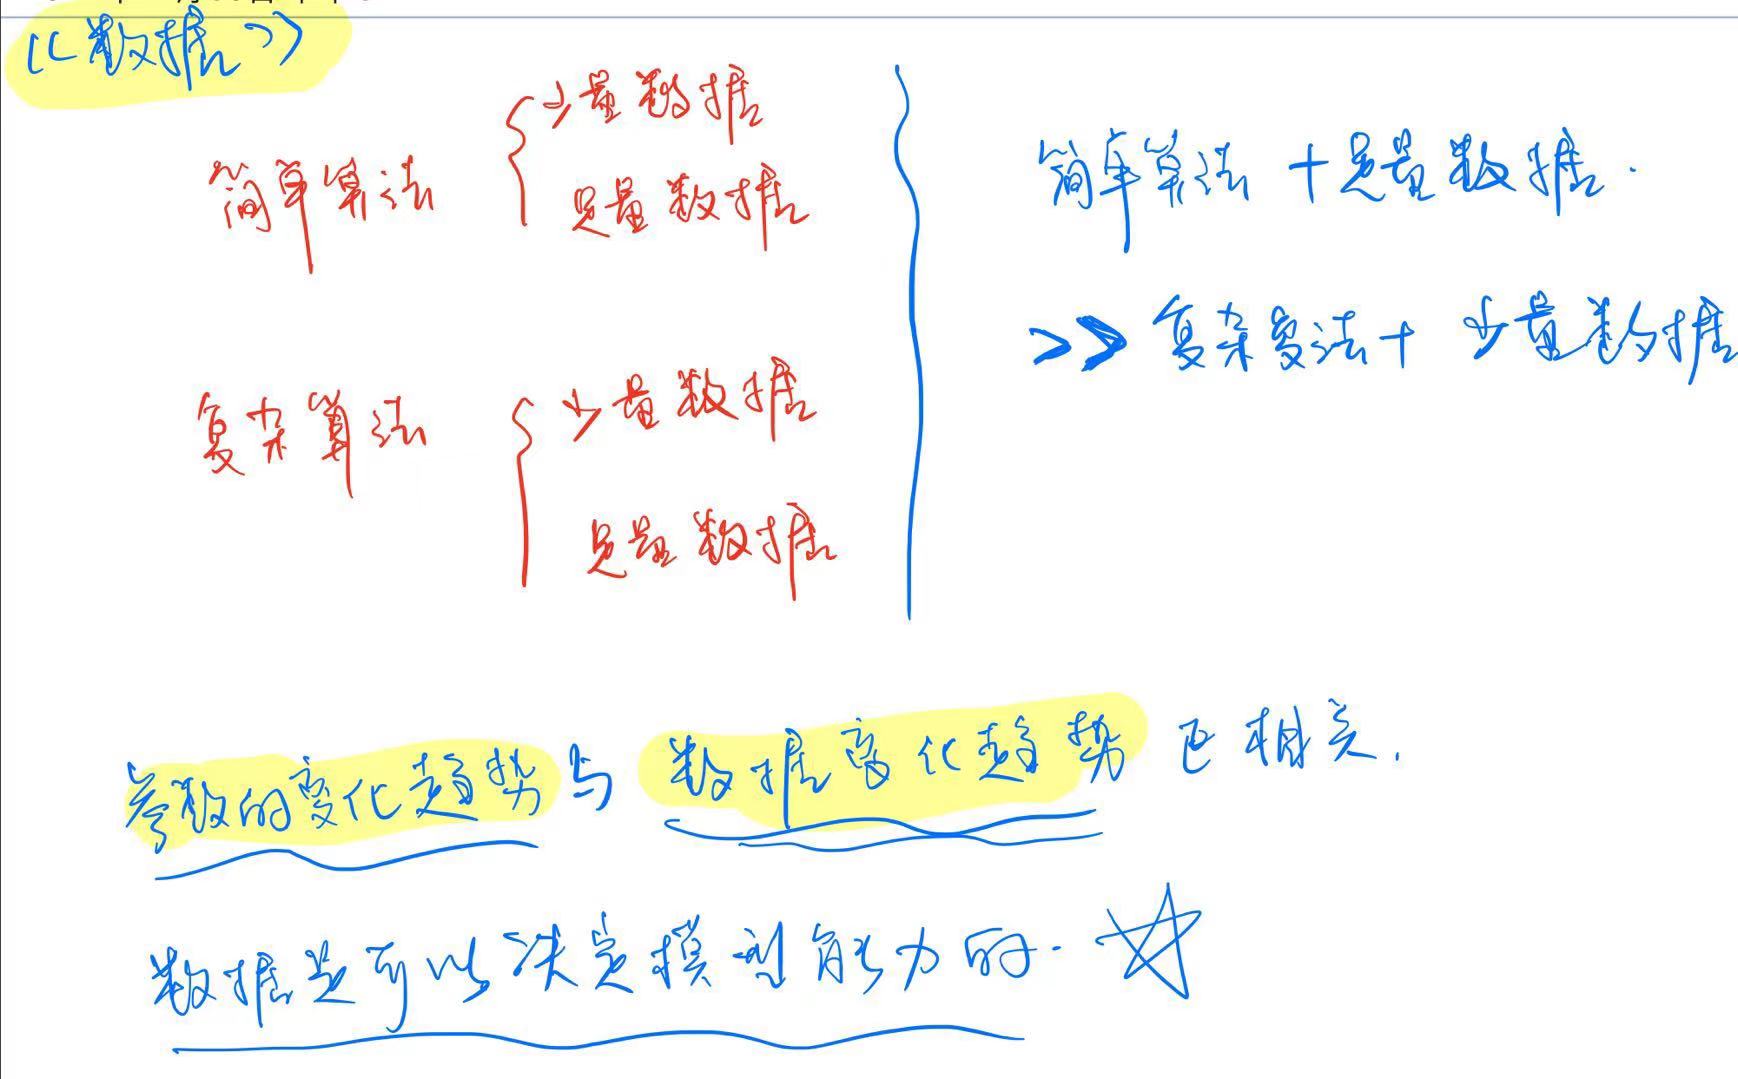 《数据》
简单算法
少量数据
足量数据
复杂算法
少量数据
足量数据
简单算法 + 足量数据.
>> 复杂算法 + 少量数据
参数的变化趋势与数据变化趋势正相关.
数据是可以决定模型能力的.